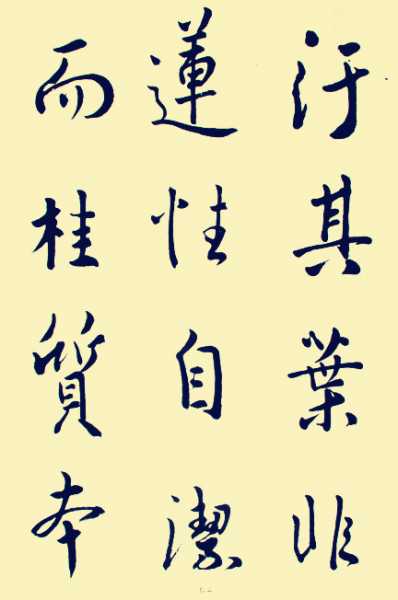 汙其葉非
蓮性自潔
而桂質本